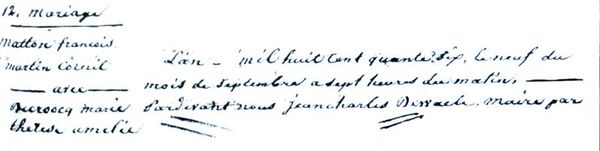 12. Mariage
Matton françois
martin Cornil
avec
Decroocq marie
thérèse amelie
L'án - mil huit Cent quante. Six, le neuf du
mois de Septembre a sept heures du matin,
Pardevant nous jean charles Dewaele, maire par